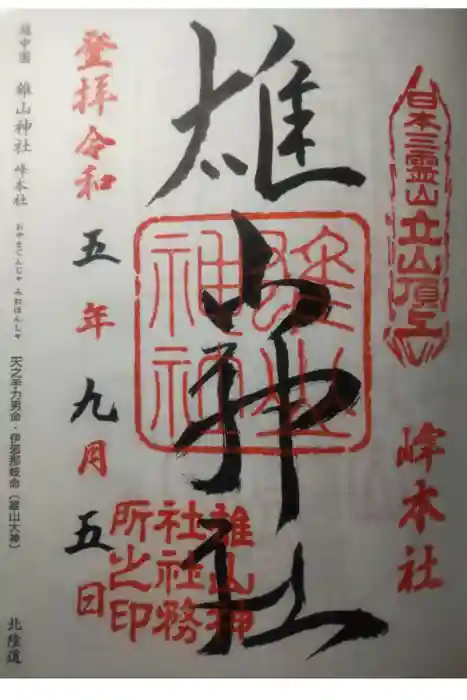 日本三霊山立山頂上
峰本社
雄山神社
雄山神社
雄山神
社社務
所之印
登拝令和五年九月五日
越中国 雄山神社 峰本社 おやまじんじゃ みねほんしゃ 天之手力男命・伊邪那岐命(雄山大神) 北陸道